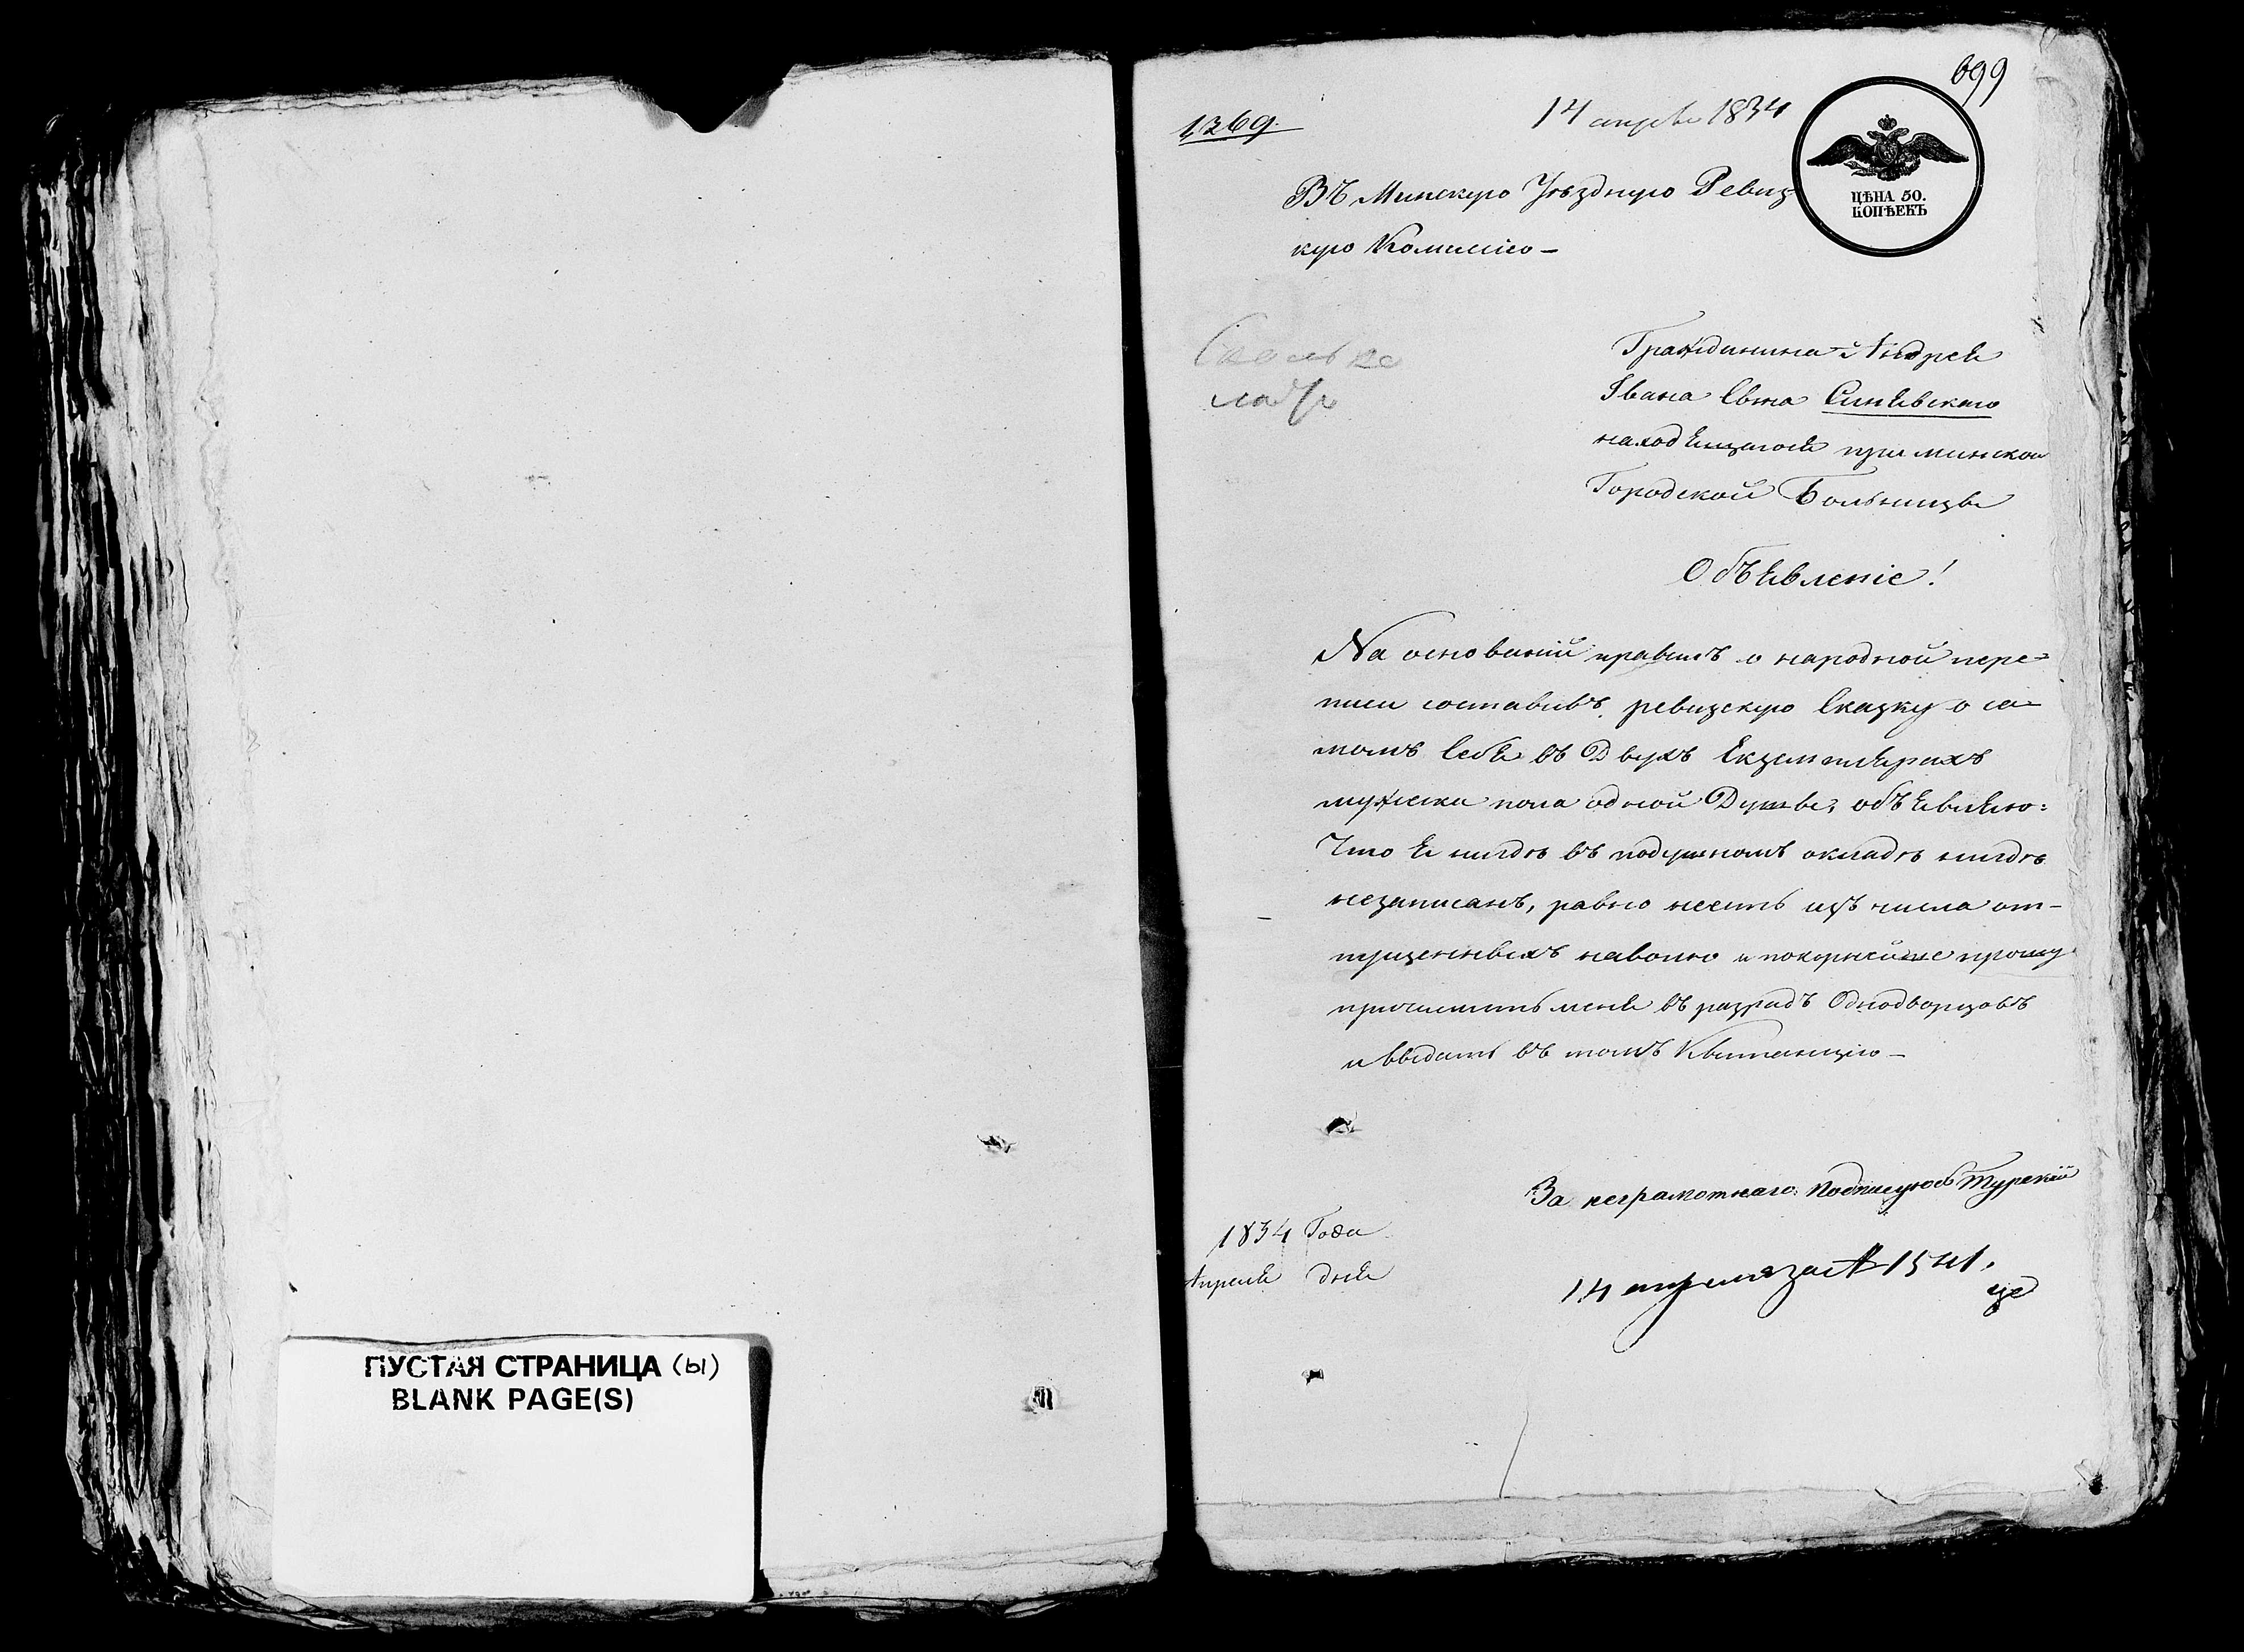 ПУСТАЯ СТРАНИЦА (ы)
BLANK PAGE(S)
699
1269.
14 апреля 1834
ЦѢНА 50.
КОПѢЕКЪ
Въ Минскую Уѣздную Ревиз-
кую Комисію –
Гражданина Андрея
Івана Сына Синявскаго
находящагося при минской
Городской Больницѣ
Объявленіе!
На основаній правилъ о народной пере=
писи составивъ ревизскую Сказку о са=
момъ Себѣ въ Двухъ Екземплярахъ
мужеска пола одной Душѣ, объявляю:
Что я нигдѣ въ подушномъ окладѣ нигдѣ
незаписанъ, равно несть изъ числа от-
пущенныхъ наволю и покорнейше прошу
причислить меня въ разрядъ Однодворцовъ
и выдать въ томъ Квитанцію –
За неграмотнаго подписуюсь Турскій
1834 Года
Апреля дня
14 апреля 1541.